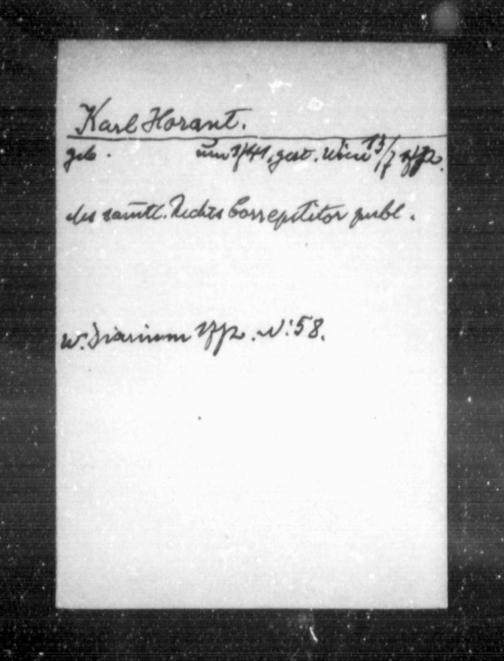 Karl Horant.
geb. um 1741, gest. Wien 13/7 1772.
des sämtl. Rechts Correpetitor publ.
W. Diarium 1772. N: 58.